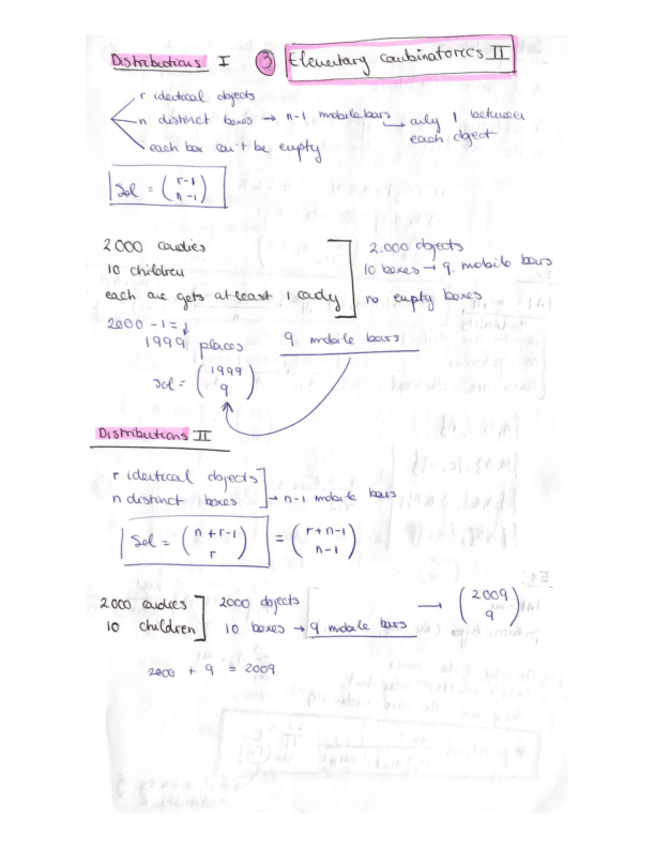 Distributions I ③ Elementary combinatorics II
r identical objects
n distinct boxes → n-1 mobile bars → only 1 between each object
each box can't be empty
Sol = (r-1 n-1)
2000 candies 2.000 objects
10 children 10 boxes → 9 mobile bars
each one gets at least 1 cady no empty boxes
2000 - 1 =
1999 places 9 mobile bars
sol = (1999 9)
Distributions II
r identical objects
n distinct boxes → n-1 mobile bars
Sol = (n+r-1 r) = (r+n-1 n-1)
2000 candies 2000 objects → (2009 9)
10 children 10 boxes → 9 mobile bars
2000 + 9 = 2009